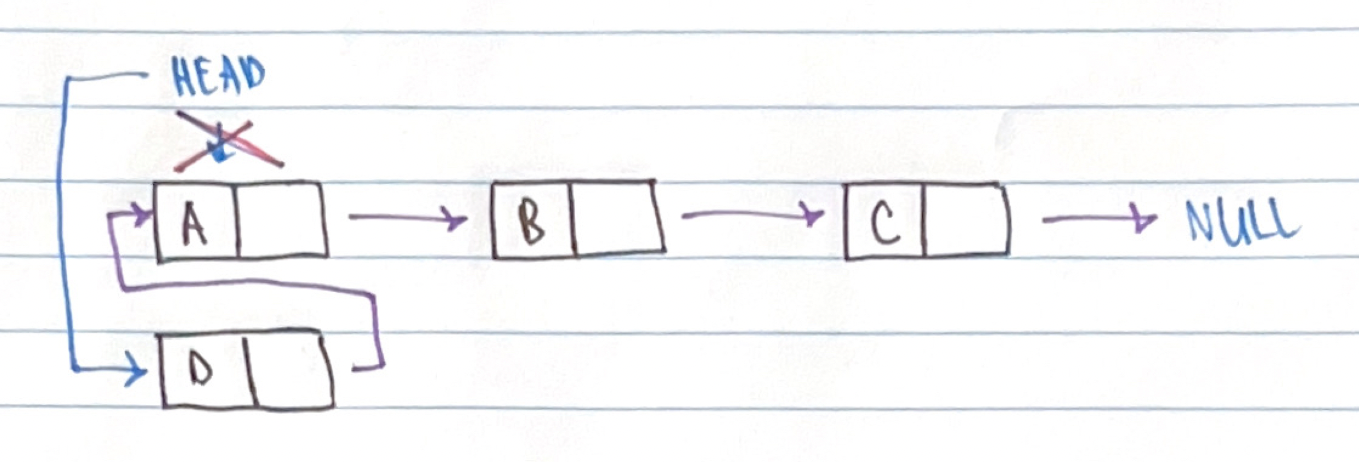 HEAD
A B C NULL
D